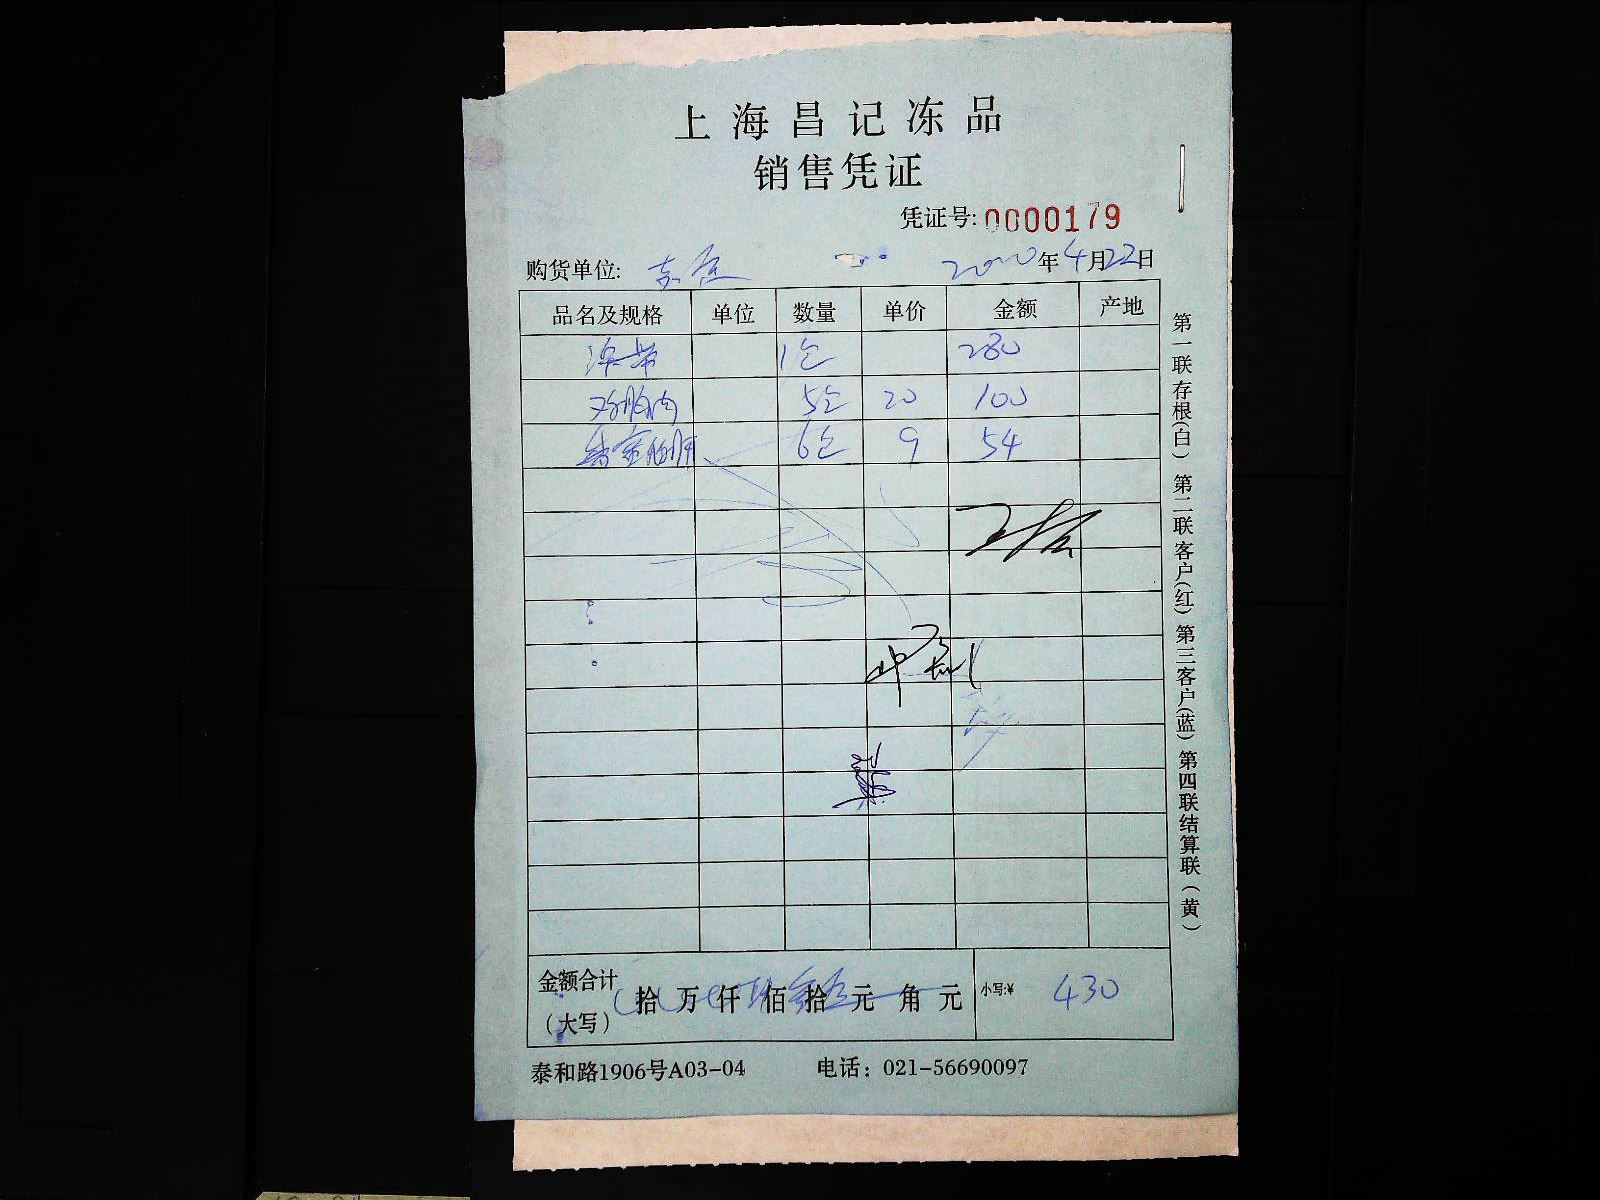 上海昌记冻品
销售凭证
凭证号: 0000179
购货单位: 2020年4月22日
品名及规格 单位 数量 单价 金额 产地
1包 280
鸡胸肉 5包 20 100
6包 9 54
金额合计(大写) 拾 万 仟 佰 拾 元 角 元 小写:¥ 430
泰和路1906号A03-04 电话: 021-56690097
第一联存根(白) 第二联客户(红) 第三客户(蓝) 第四联结算联(黄)